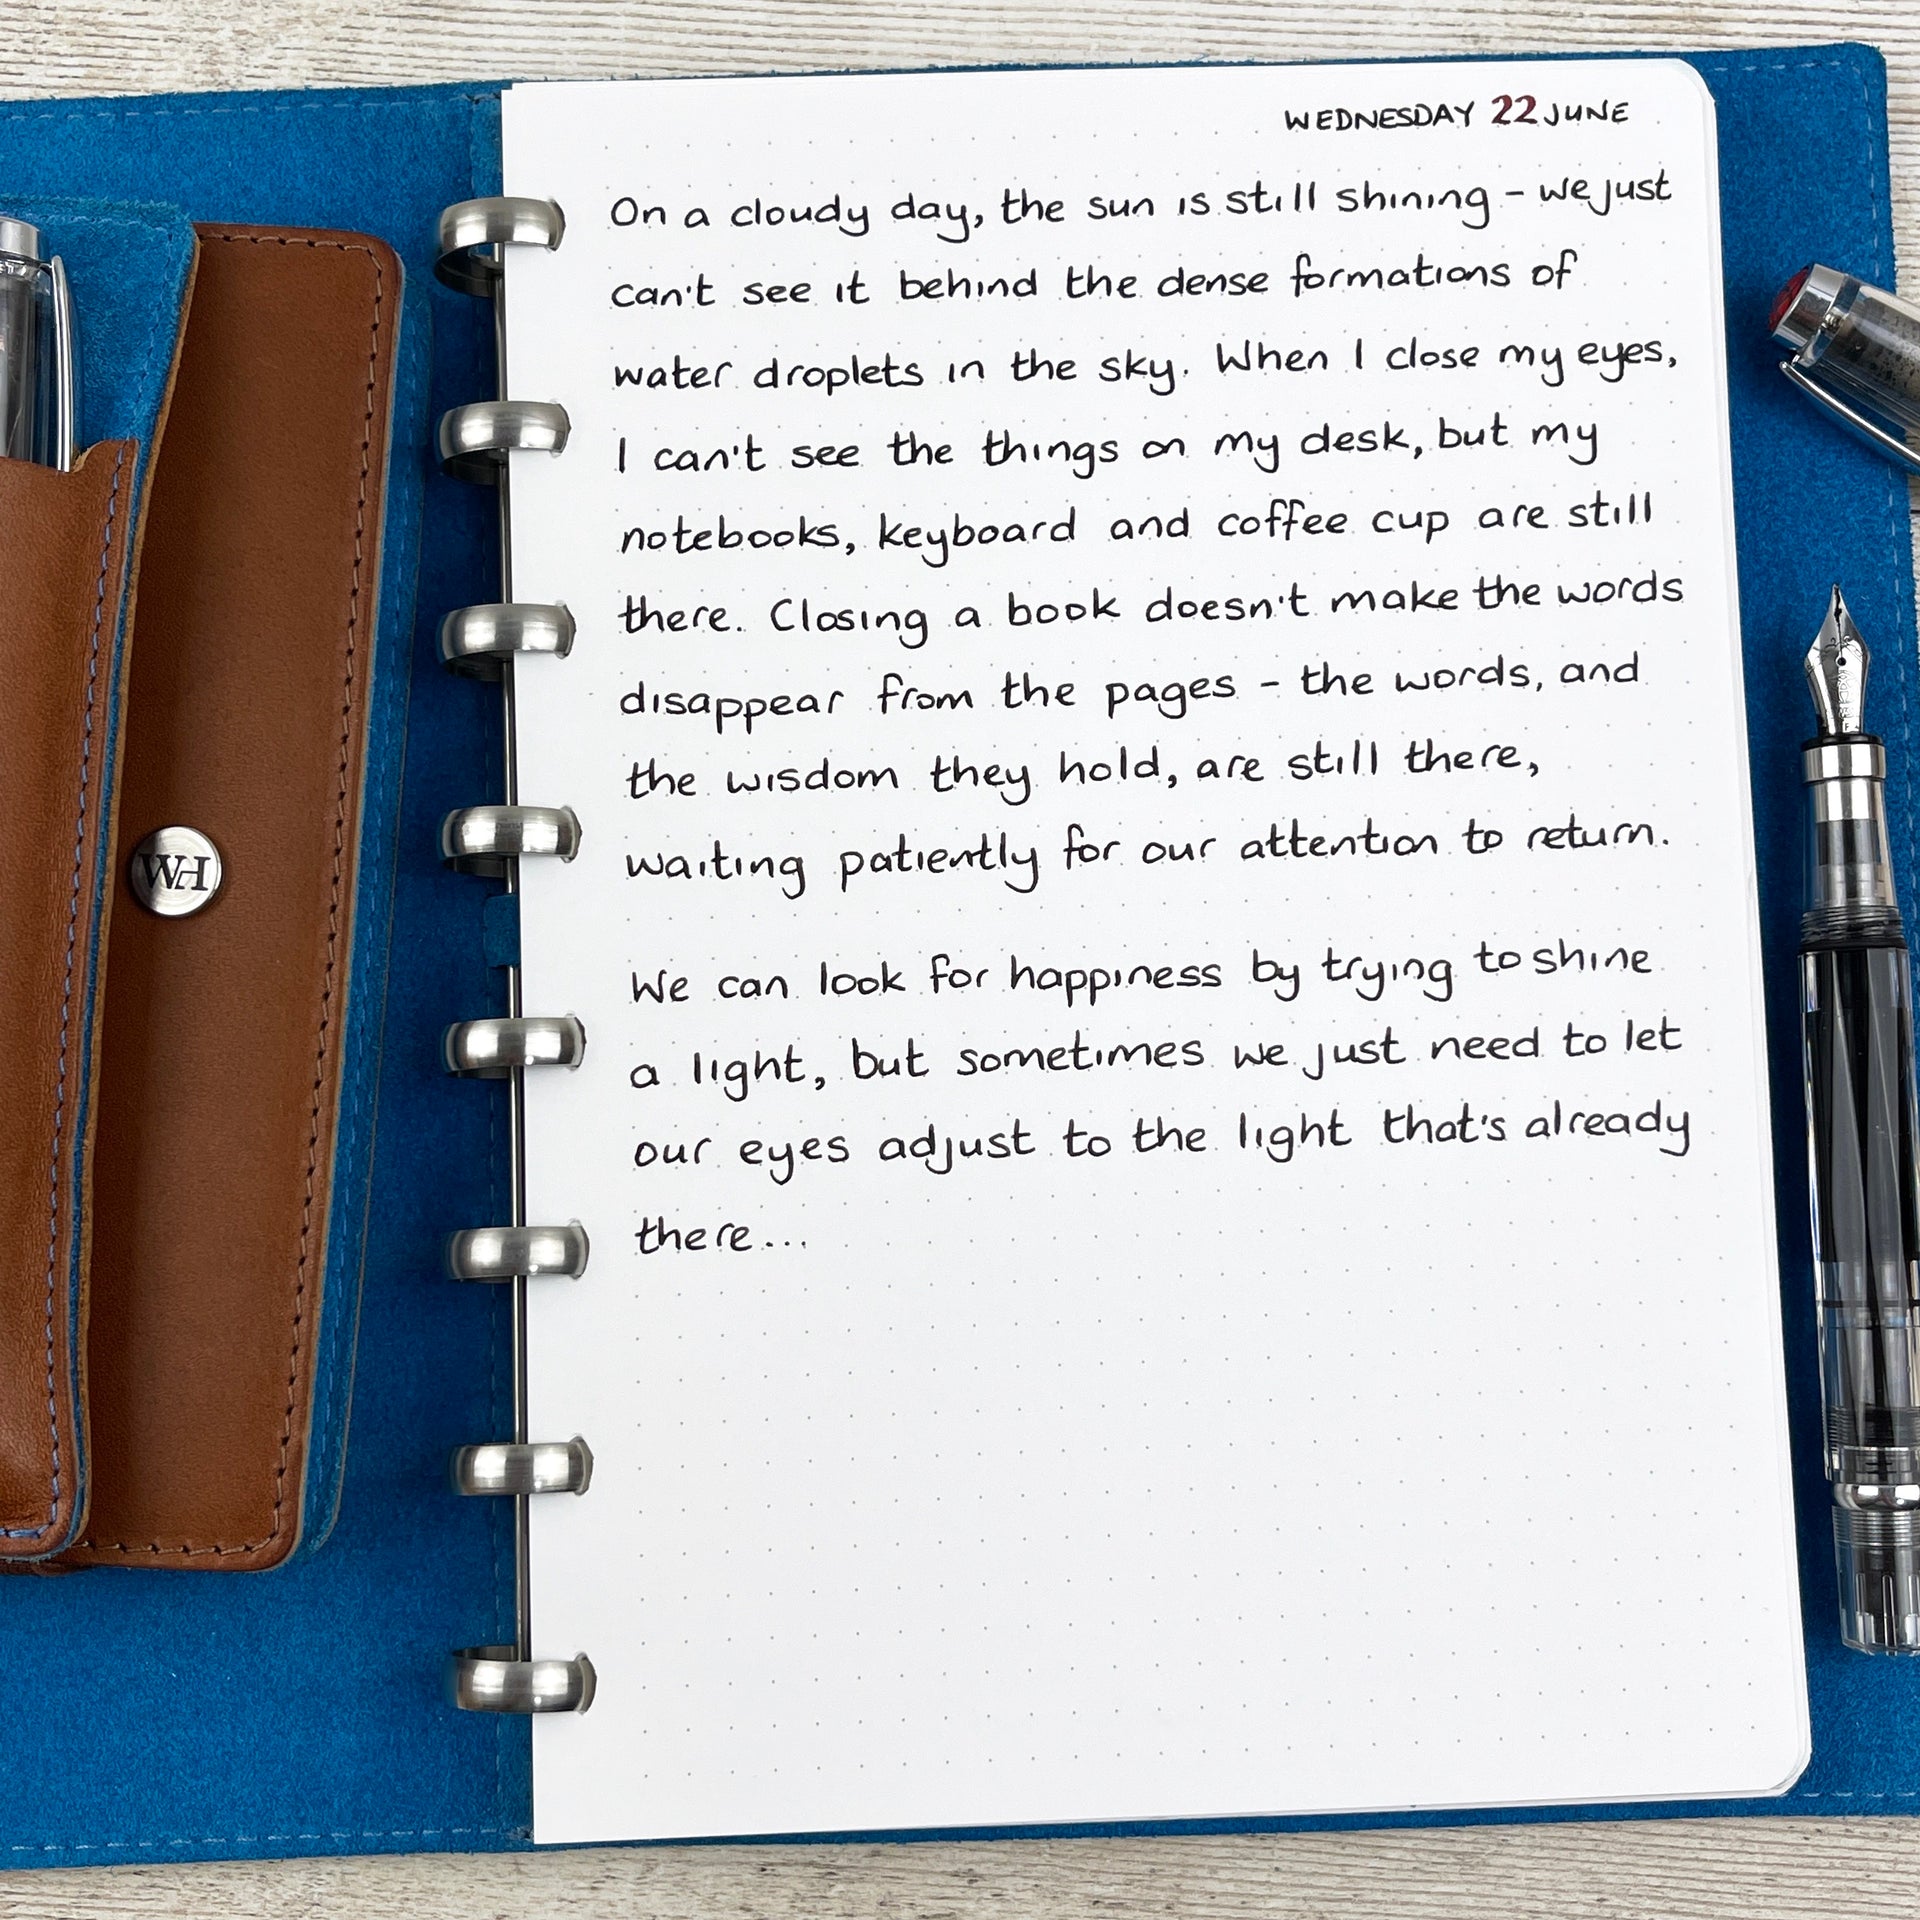 WEDNESDAY 22 JUNE
On a cloudy day, the sun is still shining - we just
can't see it behind the dense formations of
water droplets in the sky. When I close my eyes,
I can't see the things on my desk, but my
notebooks, keyboard and coffee cup are still
there. Closing a book doesn't make the words
disappear from the pages - the words, and
the wisdom they hold, are still there,
waiting patiently for our attention to return.
We can look for happiness by trying to shine
a light, but sometimes we just need to let
our eyes adjust to the light that's already
there...
WH